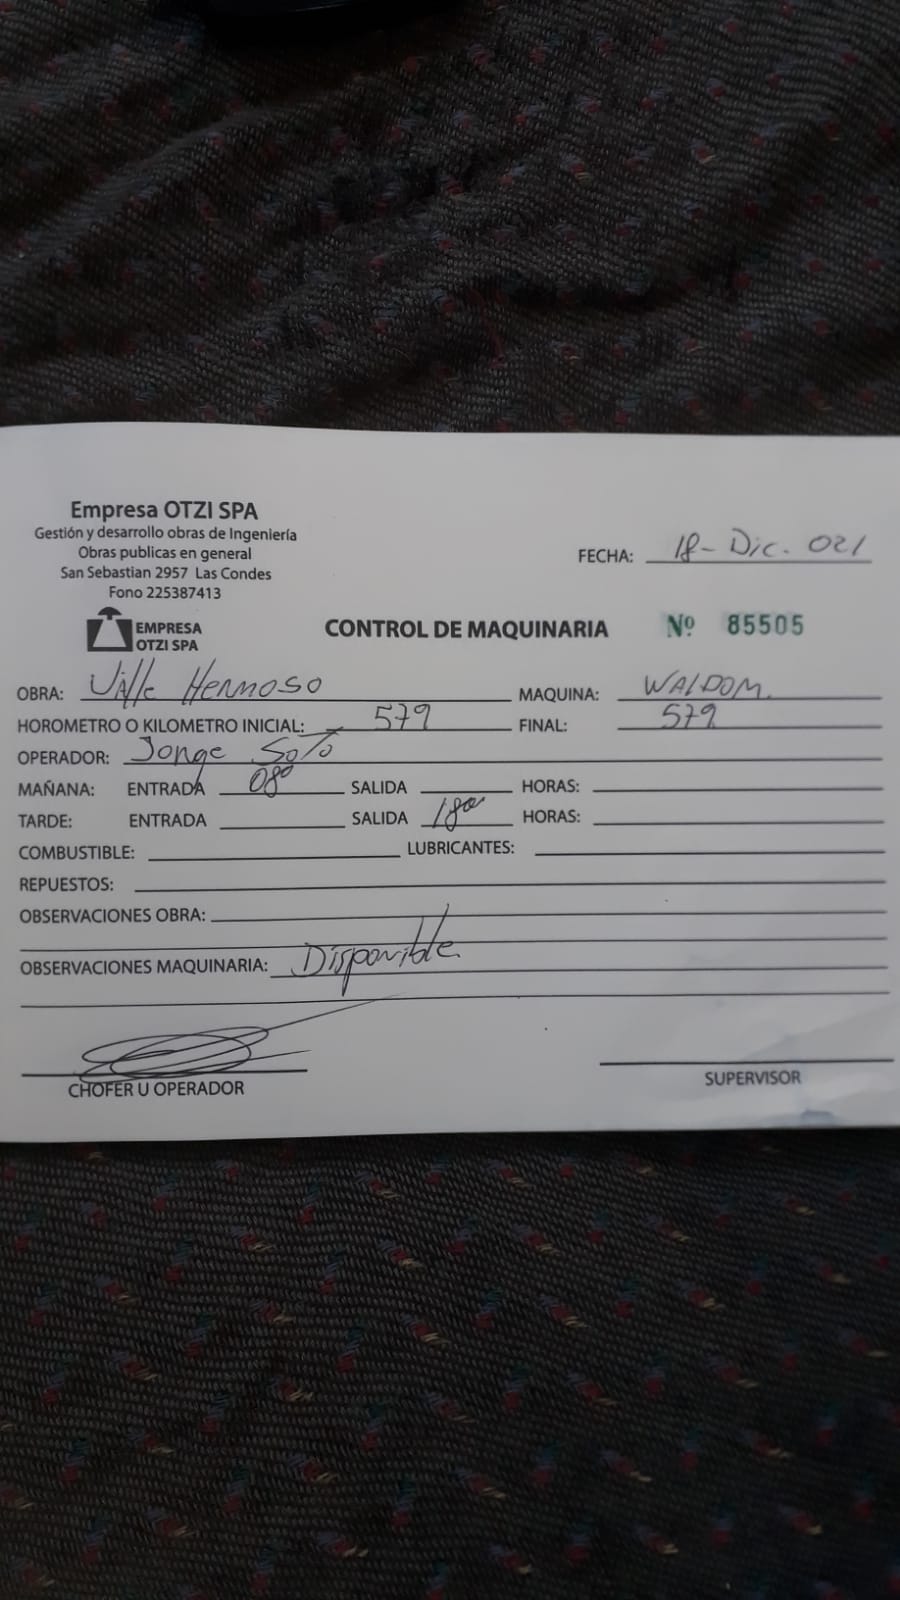 Empresa OTZI SPA
Gestión y desarrollo obras de Ingeniería
Obras publicas en general
San Sebastian 2957 Las Condes
Fono 225387413
FECHA: 18- Dic. 021
EMPRESA
OTZI SPA
CONTROL DE MAQUINARIA Nº 85505
OBRA: Valle Hermoso MAQUINA: WALDOM.
HOROMETRO O KILOMETRO INICIAL: 579 FINAL: 579
OPERADOR: Jorge Soto
MAÑANA: ENTRADA 08⁰⁰ SALIDA HORAS:
TARDE: ENTRADA SALIDA 18⁰⁰ HORAS:
COMBUSTIBLE: LUBRICANTES:
REPUESTOS:
OBSERVACIONES OBRA:
OBSERVACIONES MAQUINARIA: Disponible
CHOFER U OPERADOR SUPERVISOR